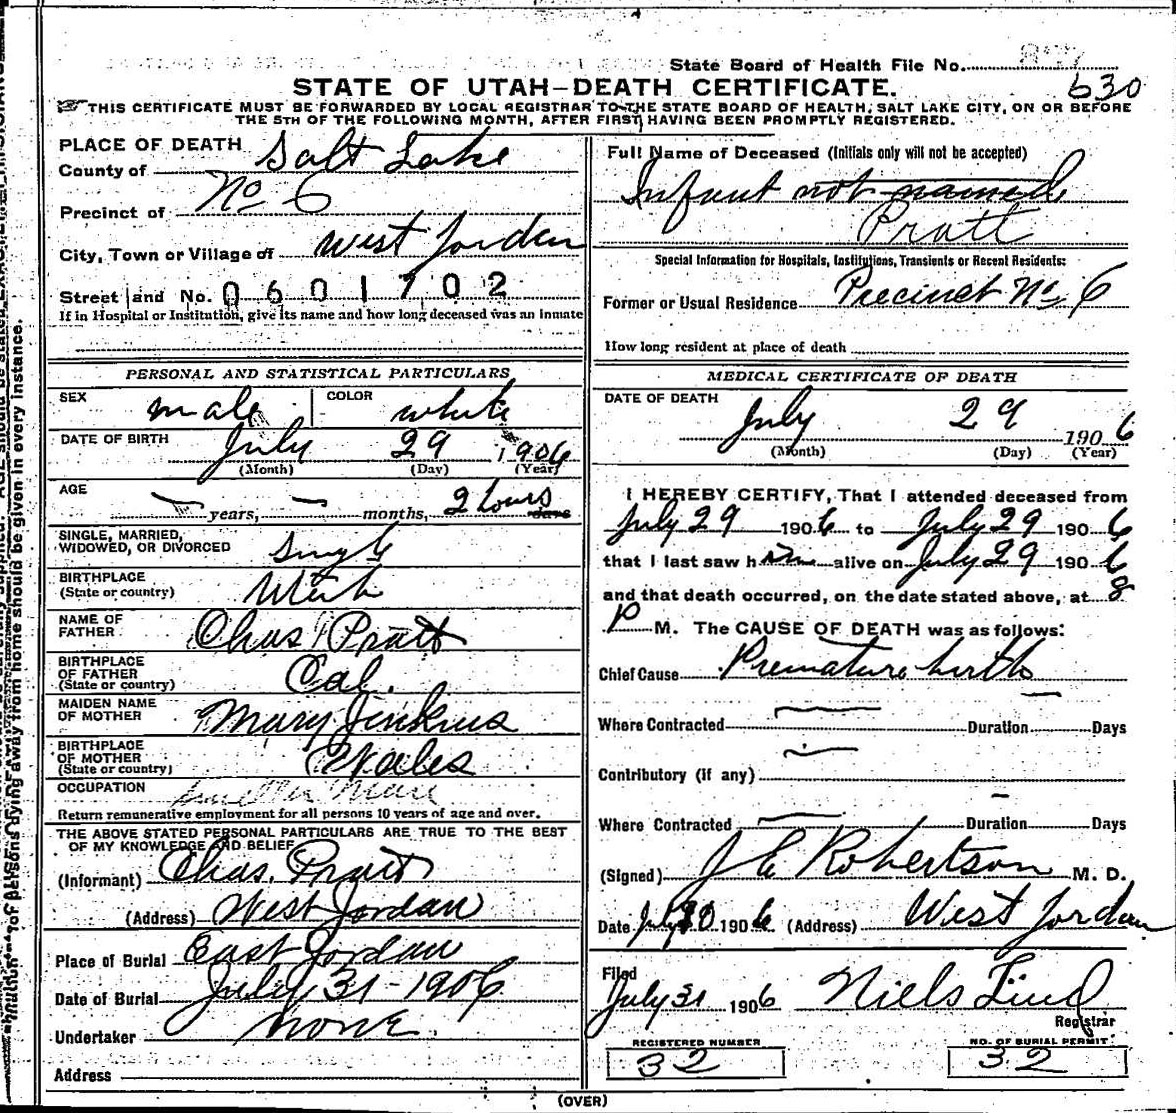 State Board of Health File No.
630
STATE OF UTAH—DEATH CERTIFICATE.
THIS CERTIFICATE MUST BE FORWARDED BY LOCAL REGISTRAR TO THE STATE BOARD OF HEALTH, SALT LAKE CITY, ON OR BEFORE
THE 5TH OF THE FOLLOWING MONTH, AFTER FIRST HAVING BEEN PROMPTLY REGISTERED.
PLACE OF DEATH
County of Salt Lake
Precinct of No 6
City, Town or Village of West Jordan
Street and No. 0601702
If in Hospital or Institution, give its name and how long deceased was an inmate
PERSONAL AND STATISTICAL PARTICULARS
SEX male COLOR white
DATE OF BIRTH July 29 1906
(Month) (Day) (Year)
AGE years, months, 2 hours days
SINGLE, MARRIED,
WIDOWED, OR DIVORCED Single
BIRTHPLACE
(State or country) Utah
NAME OF
FATHER Chas Pratt
BIRTHPLACE
OF FATHER
(State or country) Cal.
MAIDEN NAME
OF MOTHER Mary Jenkins
BIRTHPLACE
OF MOTHER
(State or country) Wales
OCCUPATION
Return remunerative employment for all persons 10 years of age and over.
THE ABOVE STATED PERSONAL PARTICULARS ARE TRUE TO THE BEST
OF MY KNOWLEDGE AND BELIEF
(Informant) Chas. Pratt
(Address) West Jordan
Place of Burial East Jordan
Date of Burial July 31-1906
Undertaker none.
Address
Full Name of Deceased (Initials only will not be accepted)
Infant not named
Pratt
Special Information for Hospitals, Institutions, Transients or Recent Residents:
Former or Usual Residence Precinct No 6
How long resident at place of death
MEDICAL CERTIFICATE OF DEATH
DATE OF DEATH
July 29 1906
(Month) (Day) (Year)
I HEREBY CERTIFY, That I attended deceased from
July 29 1906 to July 29 1906
that I last saw him alive on July 29 1906
and that death occurred, on the date stated above, at 8
P M. The CAUSE OF DEATH was as follows:
Chief Cause Premature birth
Where Contracted Duration Days
Contributory (if any)
Where Contracted Duration Days
(Signed) J E Robertson M. D.
Date July 30 1906 (Address) West Jordan
Filed
July 31 1906 Niels Lind
Registrar
REGISTERED NUMBER
32
NO. OF BURIAL PERMIT
32
(OVER)
of persons dying away from home should be given in every instance.